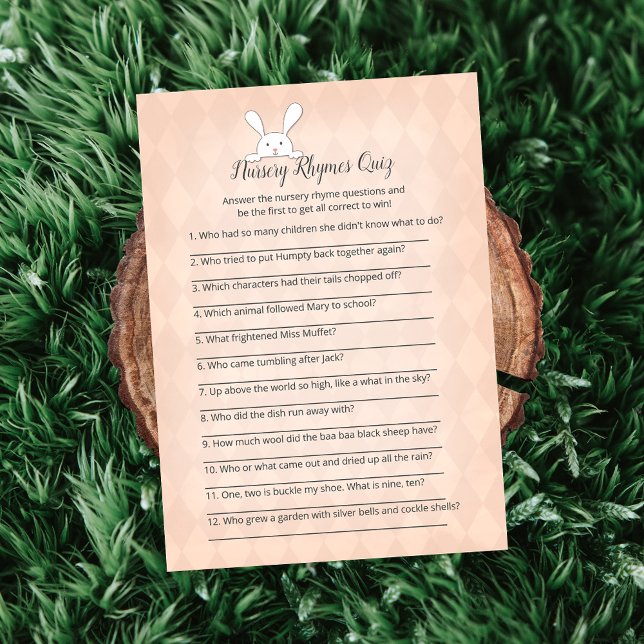 Nursery Rhymes Quiz
Answer the nursery rhyme questions and
be the first to get all correct to win!
1. Who had so many children she didn't know what to do?
2. Who tried to put Humpty back together again?
3. Which characters had their tails chopped off?
4. Which animal followed Mary to school?
5. What frightened Miss Muffet?
6. Who came tumbling after Jack?
7. Up above the world so high, like a what in the sky?
8. Who did the dish run away with?
9. How much wool did the baa baa black sheep have?
10. Who or what came out and dried up all the rain?
11. One, two is buckle my shoe. What is nine, ten?
12. Who grew a garden with silver bells and cockle shells?